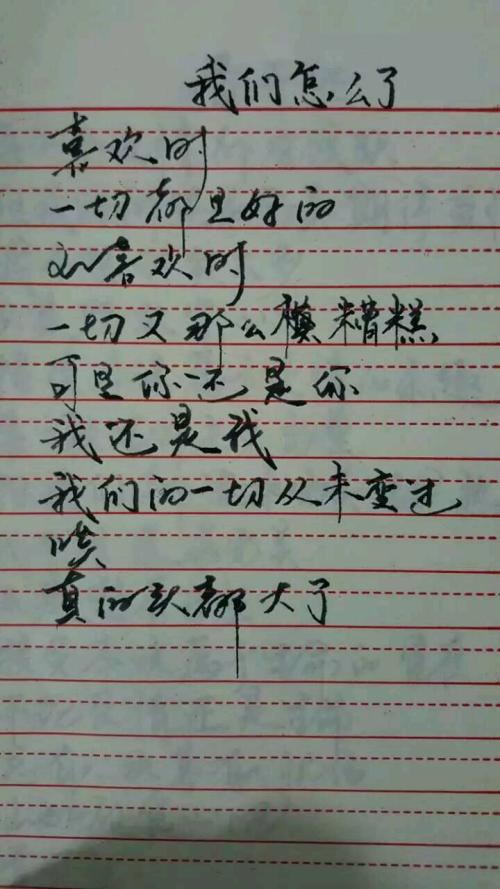 我们怎么了
喜欢时
一切都是好的
不喜欢时
一切又那么模糟糕
可是你还是你
我还是我
我们的一切从未变过
唉
真的头都大了